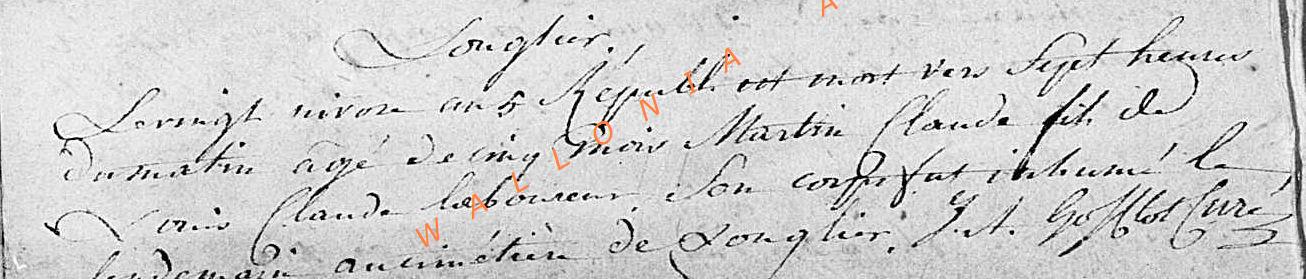 Longlier,
Le vingt nivose an 5 Républ. est mort vers Sept heures
du matin agé de cinq mois Martin Claude fils de
Louis Claude laboureur, Son corps fut inhumé le
lendemain au cimétière de Longlier. J. A. Gofflot Curé
WALLONIA A